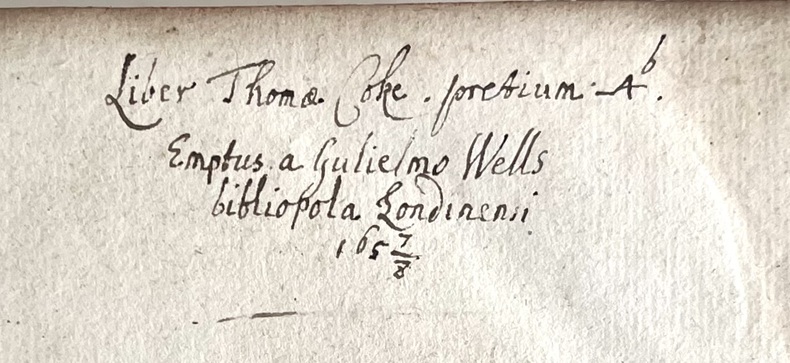 Liber Thomæ Coke. pretium. 4ˢ.
Emptus a Gulielmo Wells
bibliopola Londinensi
165 7/8